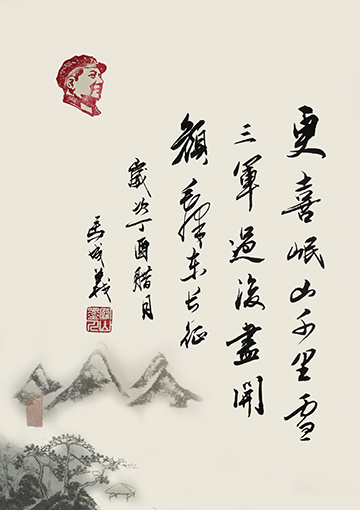 更喜岷山千里雪
三軍過後盡開
顏 毛澤东长征
歲次丁酉腊月
馬成義